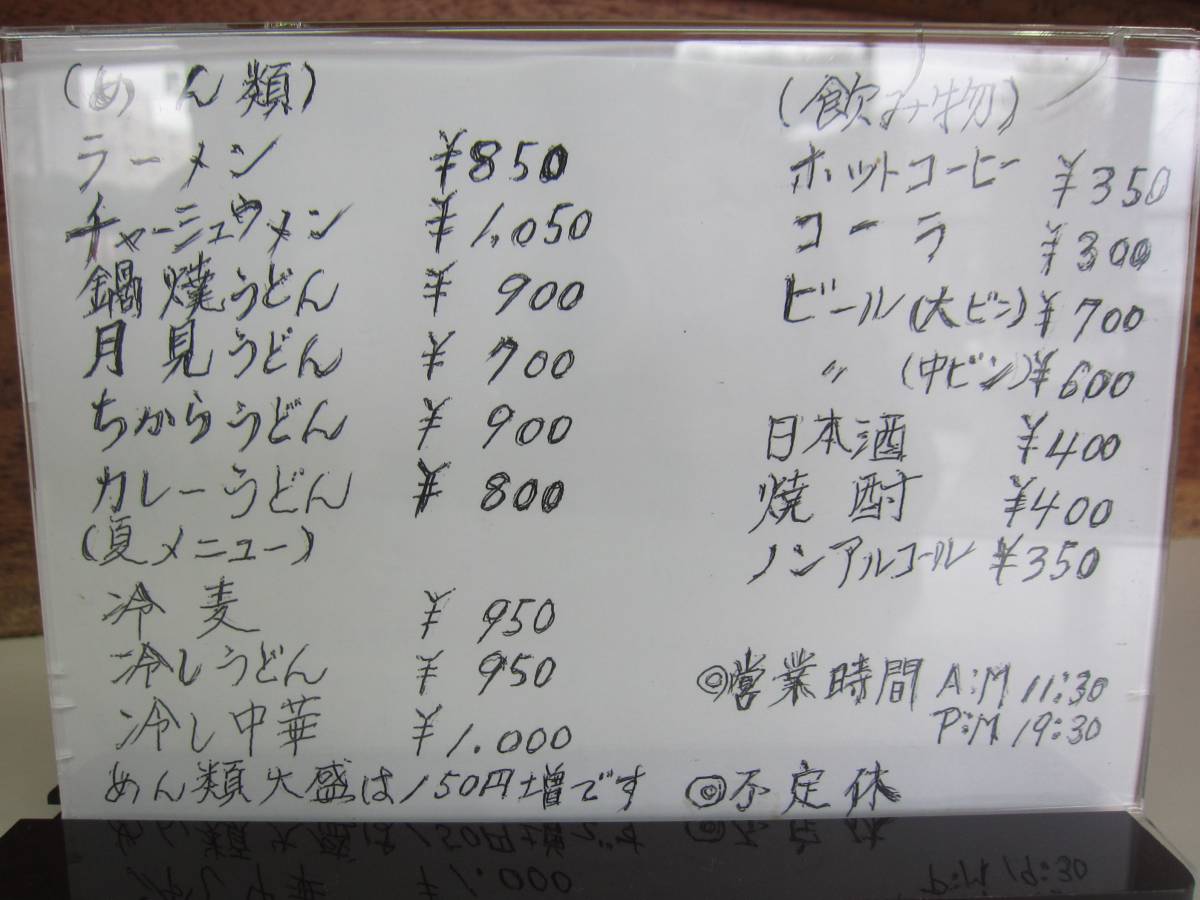 (めん類)
ラーメン ¥850
チャーシュウメン ¥1,050
鍋焼うどん ¥900
月見うどん ¥700
ちからうどん ¥900
カレーうどん ¥800
(夏メニュー)
冷麦 ¥950
冷しうどん ¥950
冷し中華 ¥1.000
めん類大盛は150円増です
(飲み物)
ホットコーヒー ¥350
コーラ ¥300
ビール(大ビン) ¥700
〃 (中ビン) ¥600
日本酒 ¥400
焼酎 ¥400
ノンアルコール ¥350
◎営業時間 A:M 11:30
P:M 19:30
◎不定休